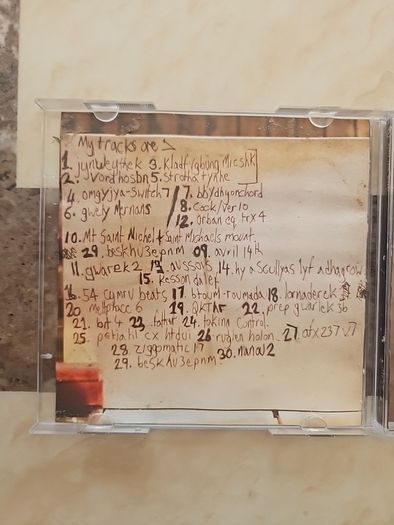 My tracks are >
1. jynweythek 3. Kladfvgbung Micshk
2. Vordhosbn 5. strotha tynhe
4. omgyjya-switch 7 / 7. bbydhyonchord
6. gwely Mernans / 8. Cock/Ver 10
12. orban eq. trx 4
10. Mt Saint Michel + Saint Michaels mount
29. beskhu3epnm 09. avril 14th
11. gwarek 2 13. aussois 14. hy a Scullyas lyf adhagrow
15. kesson dalef
16. 54 cymru beats 17. btoum-roumada 18. lornaderek
20. meltphace 6 19. QKThr 22. prep gwarlek 3b
21. bat 4 23. father 24. taking control.
25. petiatil cx htdui 26 ruglen holon. 27. afx 237 v7
28 ziggomatic 17 30. nanou2
29. beskhu3epnm